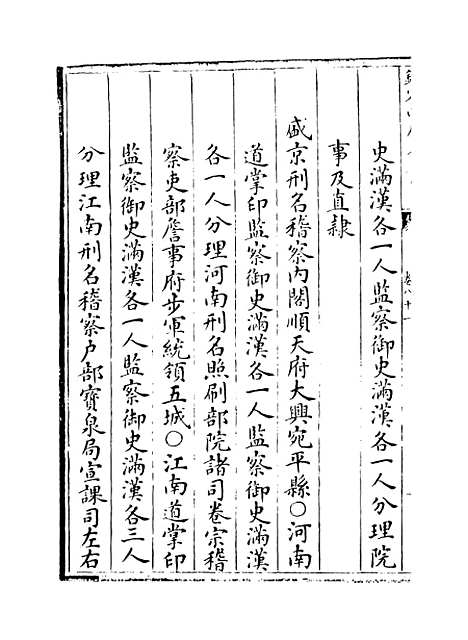 史滿漢各一人監察御史滿漢各一人分理院
事及直隷
盛京刑名稽察内閣順天府大興宛平縣○河南
道掌印監察御史滿漢各一人監察御史滿漢
各一人分理河南刑名照刷部院諸司卷宗稽
察吏部詹事府步軍統領五城○江南道掌印
監察御史滿漢各一人監察御史滿漢各三人
分理江南刑名稽察户部寶泉局宣課司左右